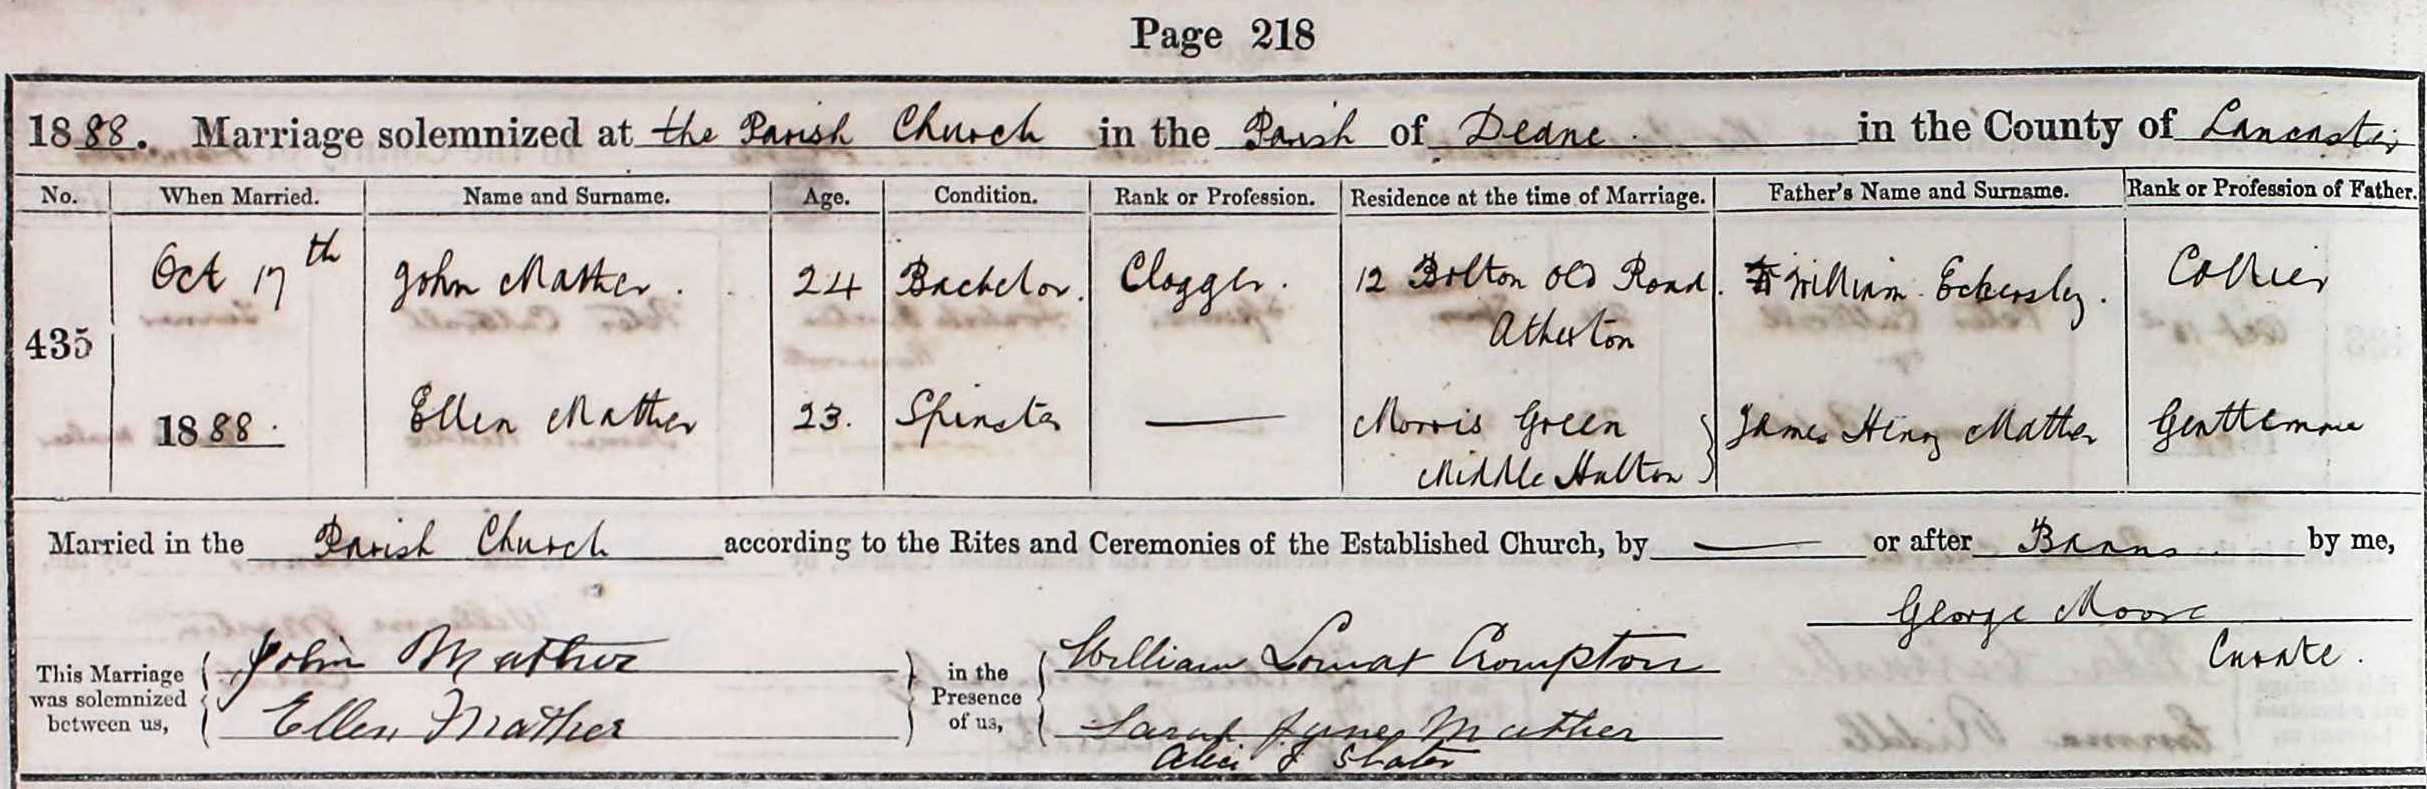 Page 218
1888. Marriage solemnized at the Parish Church in the Parish of Deane in the County of Lancaster
No. When Married. Name and Surname. Age. Condition. Rank or Profession. Residence at the time of Marriage. Father's Name and Surname. Rank or Profession of Father.
Oct 17th John Mather. 24 Bachelor. Clogger. 12 Bolton Old Road. William Eckersley. Collier
Atherton
435
1888. Ellen Mather 23. Spinster — Morris Green James Henry Mather Gentleman
Middle Hulton
Married in the Parish Church according to the Rites and Ceremonies of the Established Church, by — or after Banns by me,
George Moore
Curate.
This Marriage was solemnized between us, John Mather in the Presence of us, William Lomax Crompton
Ellen Mather Sarah Jane Mather
Alice J Slater